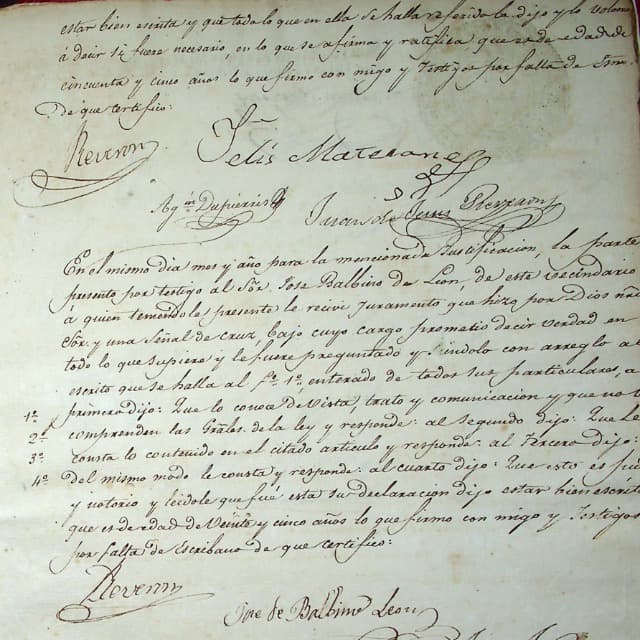 estar bien escrita y que todo lo que en ella se halla referido lo dijo y lo volverá
á decir si fuere necesario, en lo que se afirma y ratifica que es de edad de
cincuenta y cinco años lo que firmo con migo y Testigos por falta de
de que certifico:
Reveron
Felis Materano
Agin Dupierris
Juan de Reveron
En el mismo dia mes y año para la mencionada Justificacion, la parte
presento por testigo al Sör. Jose Balbino de Leon, de este vecindario
á quien teniendole presente le reciví Juramento que hizo por Dios nro
Sör. y una Señal de cruz, bajo cuyo cargo prometio decir verdad en
todo lo que supiere y le fuere preguntado y siendolo con arreglo al
escrito que se halla al fo. 1o, enterado de todos sus particulares, a
1a. primero dijo: Que lo conoce de vista, trato y comunicacion y que no le
2a. comprenden las Grales. de la ley y responde: al segundo dijo: Que le
3a. consta lo contenido en el citado articulo y responde: al Tercero dijo:
4a. Del mismo modo le consta y responde: al cuarto dijo: Que esto es pub
y notorio y leidole que fué esta su declaracion dijo estar bien escrit
que es de edad de veinte y cinco años lo que firmo con migo y Testigos
por falta de Escribano de que certifico:
Reveron
Jose de Balbino Leon